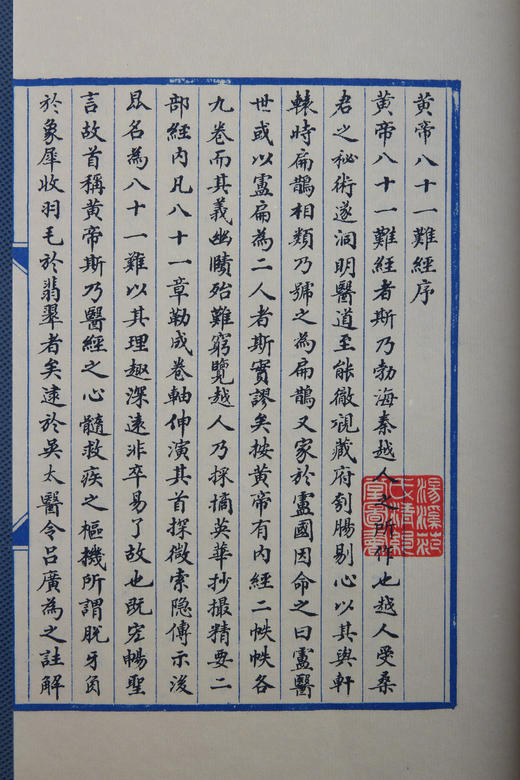 黄帝八十一難經序
黄帝八十一難經者斯乃勃海秦越人之所作也越人受桑
君之秘術遂洞明醫道至能徹視藏府刳腸剔心以其與軒
轅時扁鵲相類乃號之為扁鵲又家於盧國因命之曰盧醫
世或以盧扁為二人者斯實謬矣按黄帝有内經二帙帙各
九卷而其義幽賾殆難窮覽越人乃採摘英華抄撮精要二
部經内凡八十一章勒成卷軸伸演其首探微索隐傳示後
昆名為八十一難以其理趣深遠非卒易了故也既宏暢聖
言故首稱黄帝斯乃醫經之心髓救疾之樞機所謂脱牙角
於象犀收羽毛於翡翠者矣逮於吴太醫令吕廣為之註解